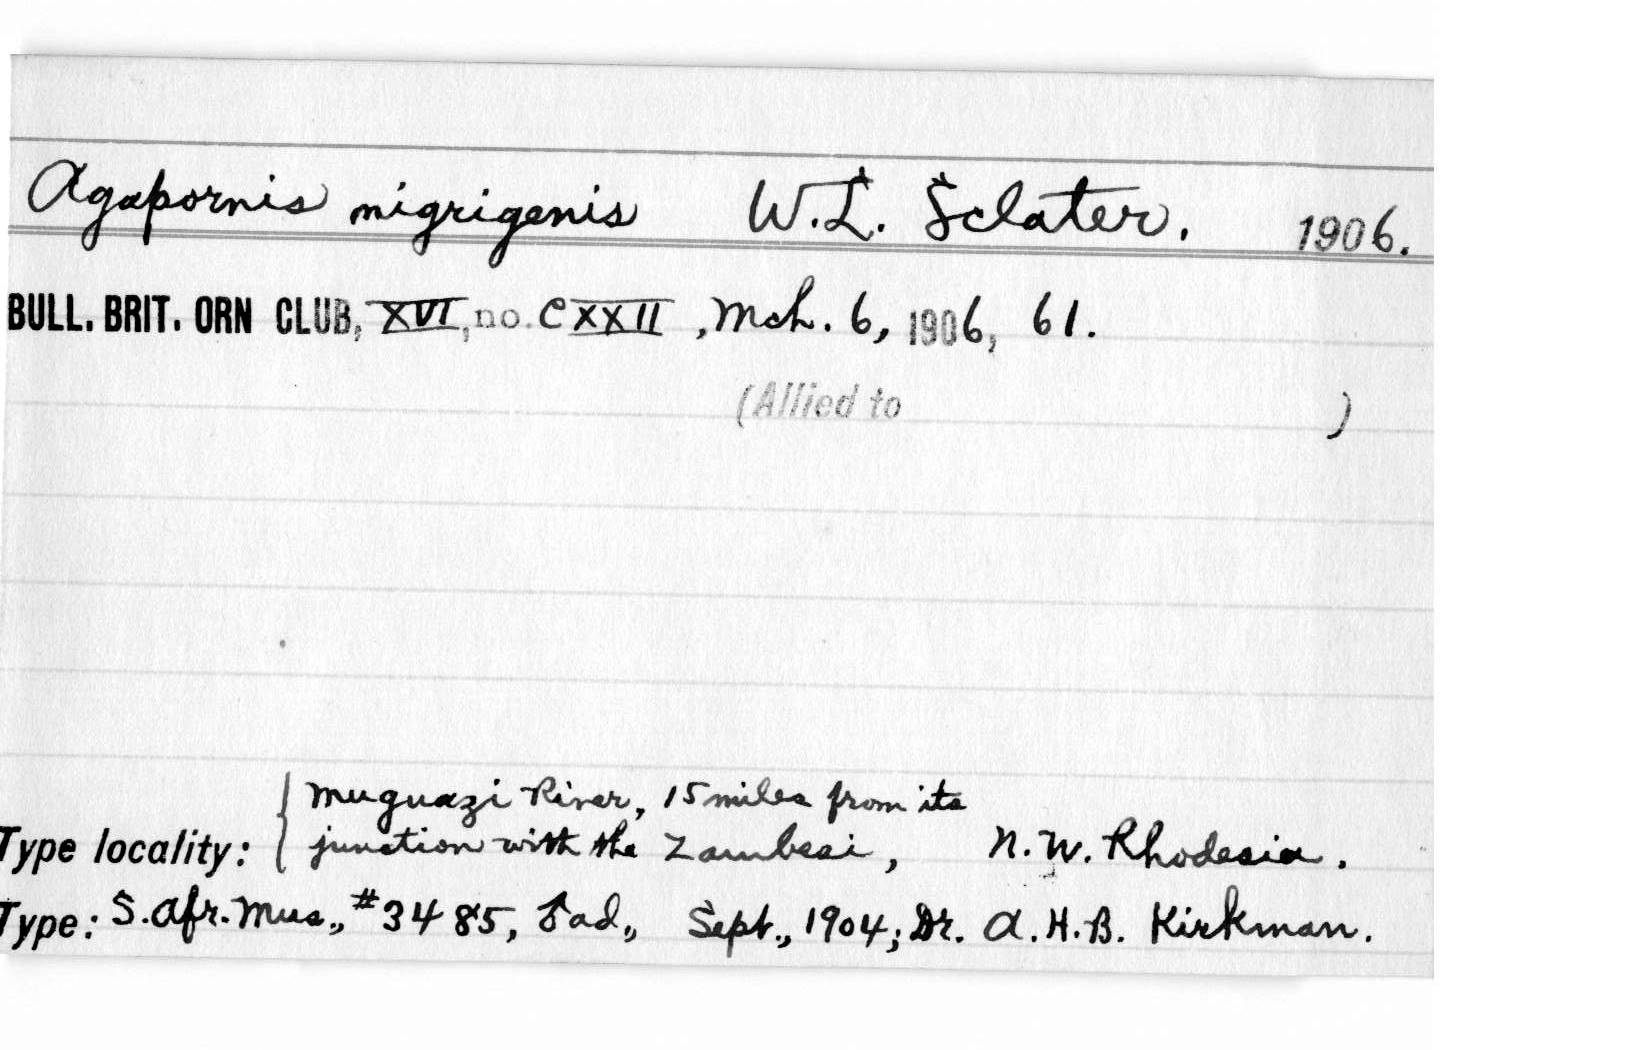 Agapornis nigrigenis W.L. Sclater. 1906.
BULL. BRIT. ORN CLUB, XVI, no. CXXII, Mch. 6, 1906, 61.
(Allied to )
Muguazi River, 15 miles from its
Type locality: junction with the Zambesi, N.W. Rhodesia.
Type: S. Afr. Mus., #3485, ♂ ad., Sept., 1904; Dr. A.H.B. Kirkman.